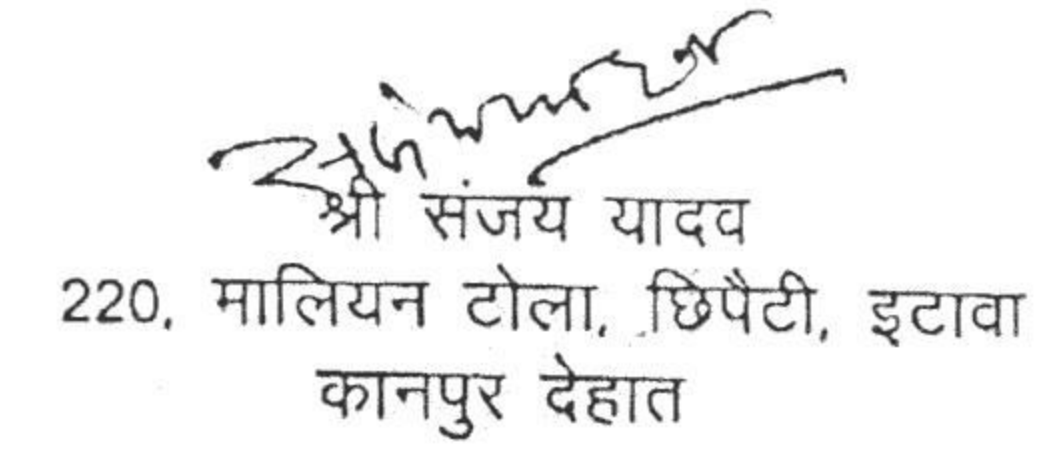 श्री संजय यादव
220, मालियन टोला, छिपैटी, इटावा
कानपुर देहात